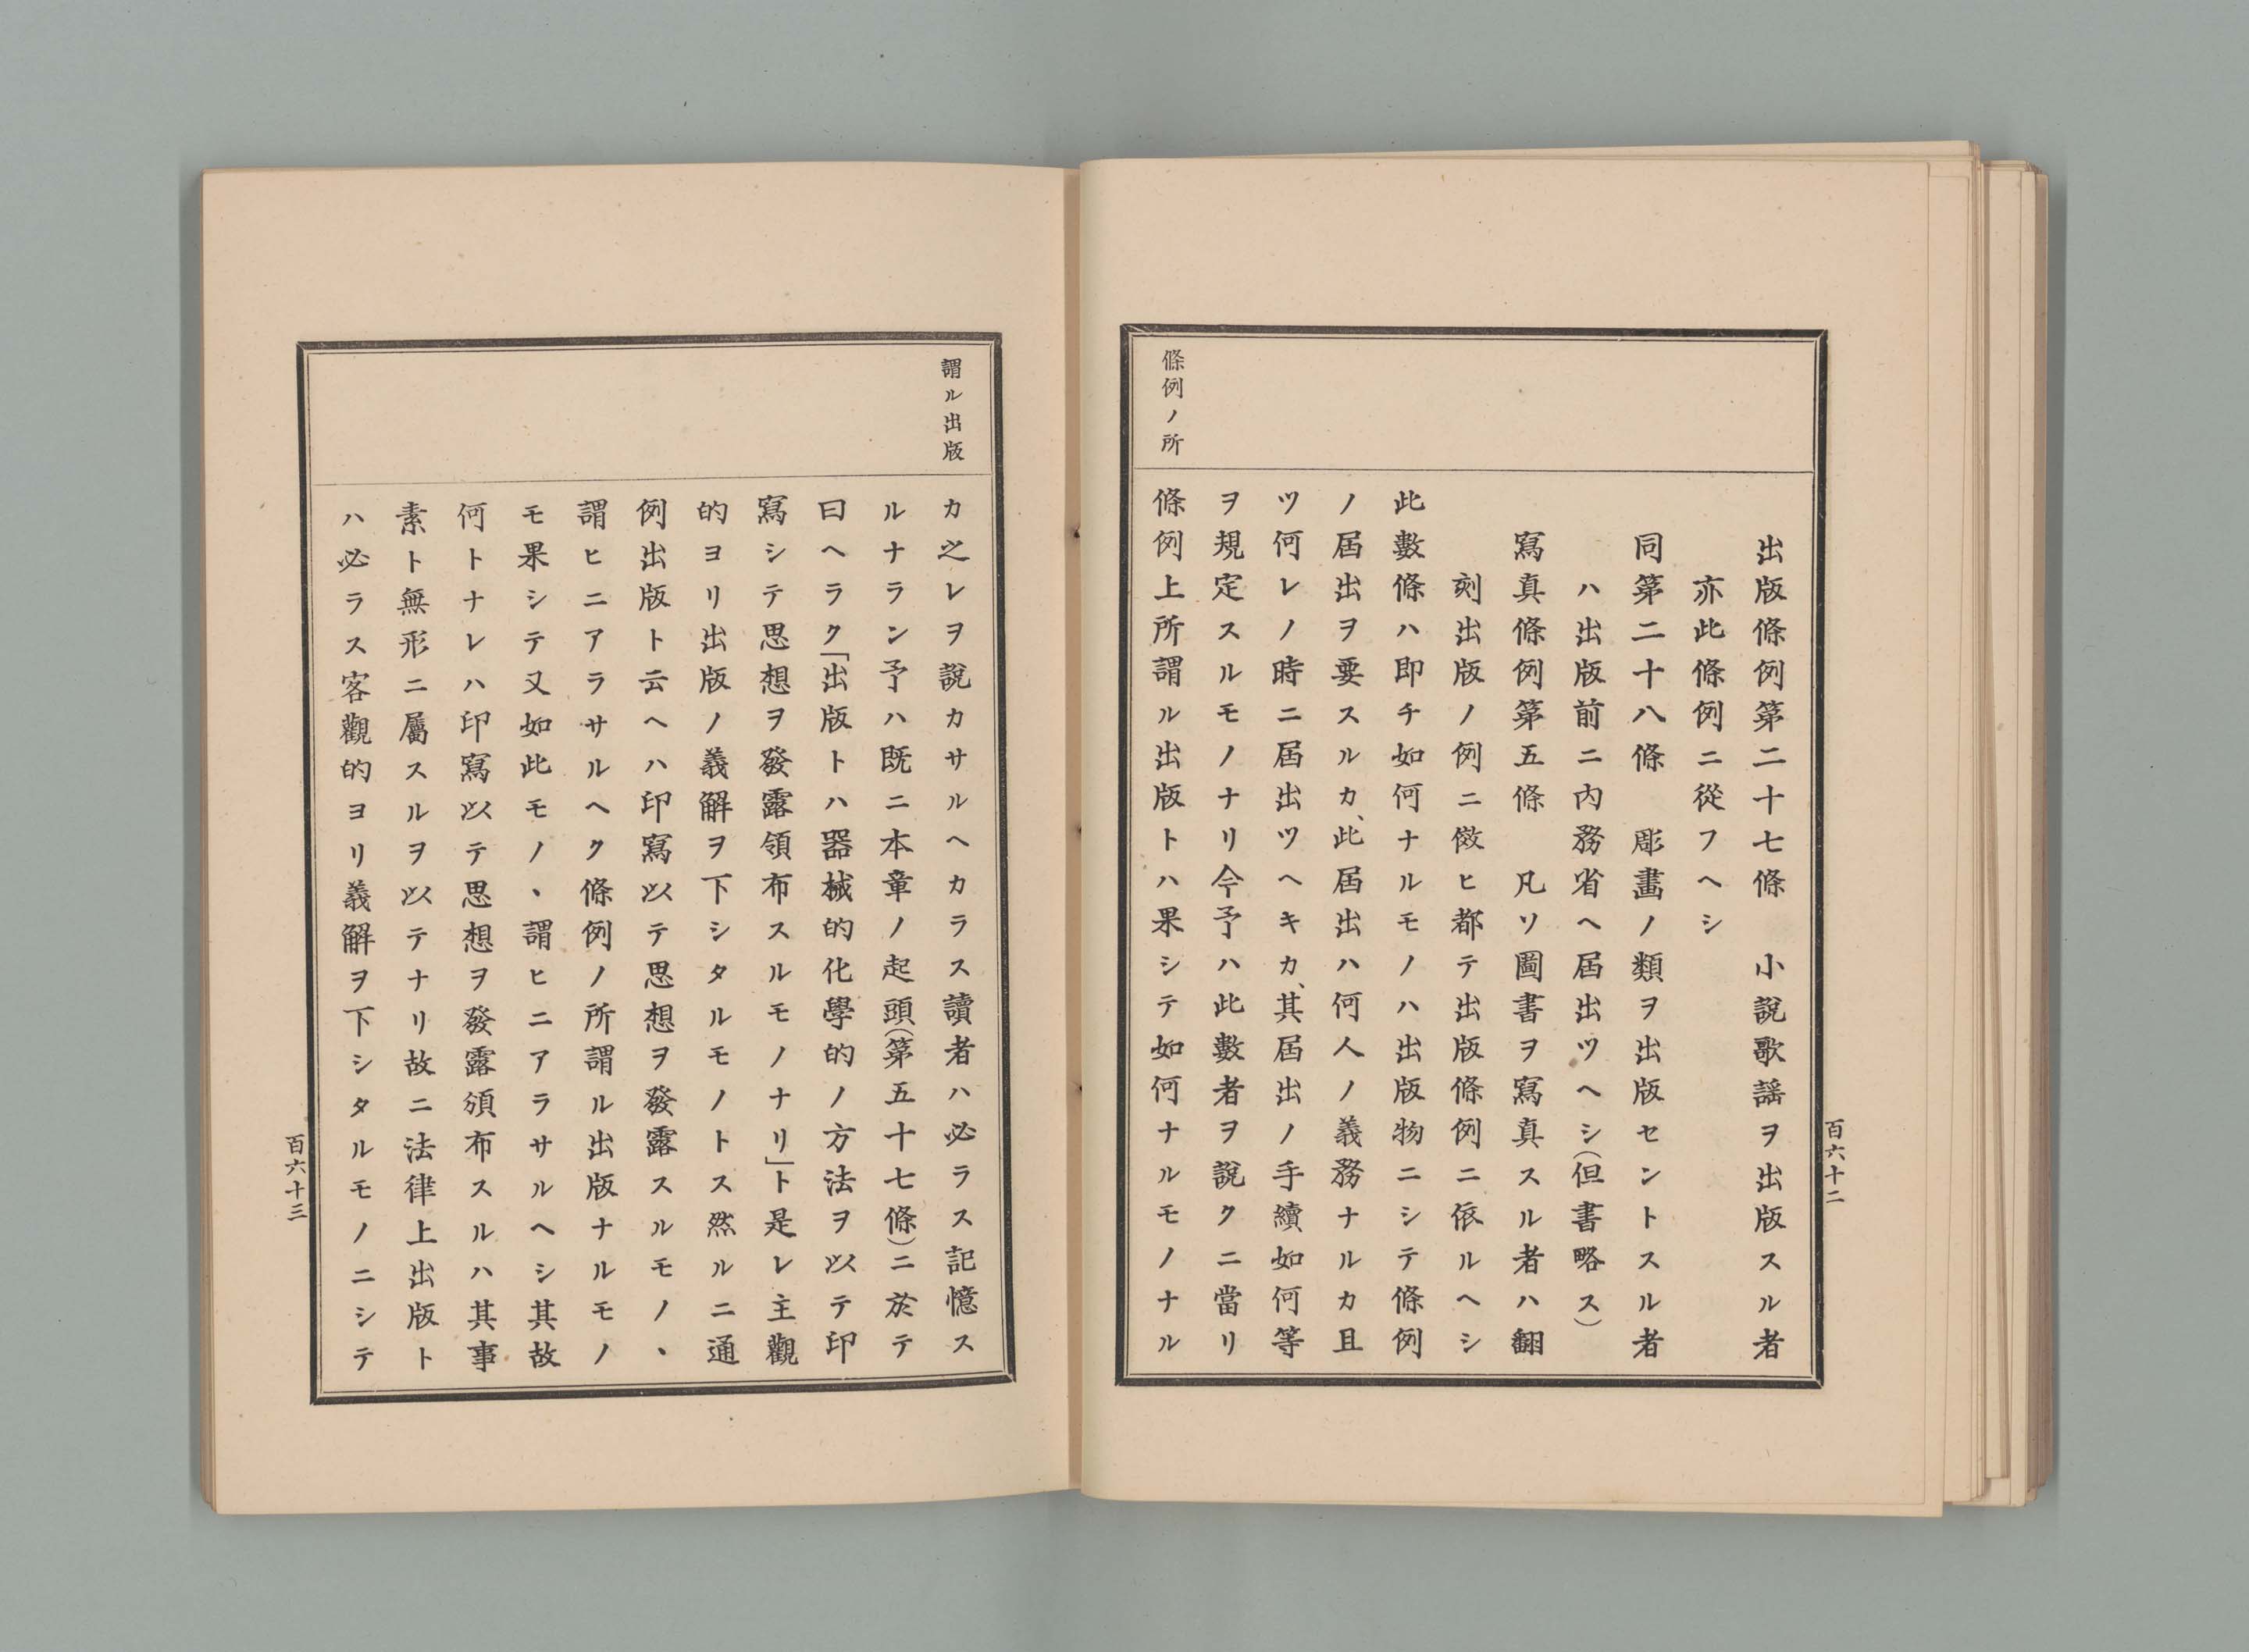 百六十二
條例ノ所
出版條例第二十七條　小說歌謡ヲ出版スル者
亦此條例ニ從フヘシ
同第二十八條　彫畫ノ類ヲ出版セントスル者
ハ出版前ニ內務省ヘ屆出ツヘシ(但書略ス)
寫真條例第五條　凡ソ圖書ヲ寫真スル者ハ翻
刻出版ノ例ニ傚ヒ都テ出版條例ニ依ルヘシ
此數條ハ即チ如何ナルモノハ出版物ニシテ條例
ノ屆出ヲ要スルカ、此屆出ハ何人ノ義務ナルカ且
ツ何レノ時ニ屆出ツヘキカ、其屆出ノ手續如何等
ヲ規定スルモノナリ今予ハ此數者ヲ說クニ當リ
條例上所謂ル出版トハ果シテ如何ナルモノナル
謂ル出版
カ之レヲ說カサルヘカラス讀者ハ必ラス記憶ス
ルナラン予ハ既ニ本章ノ起頭(第五十七條)ニ於テ
曰ヘラク「出版トハ器械的化學的ノ方法ヲ以テ印
寫シテ思想ヲ發露領布スルモノナリ」ト是レ主觀
的ヨリ出版ノ義解ヲ下シタルモノトス然ルニ通
例出版ト云ヘハ印寫以テ思想ヲ發露スルモノヽ
謂ヒニアラサルヘク條例ノ所謂ル出版ナルモノ
モ果シテ又如此モノヽ謂ヒニアラサルヘシ其故
何トナレハ印寫以テ思想ヲ發露頒布スルハ其事
素ト無形ニ屬スルヲ以テナリ故ニ法律上出版ト
ハ必ラス客觀的ヨリ義解ヲ下シタルモノニシテ
百六十三